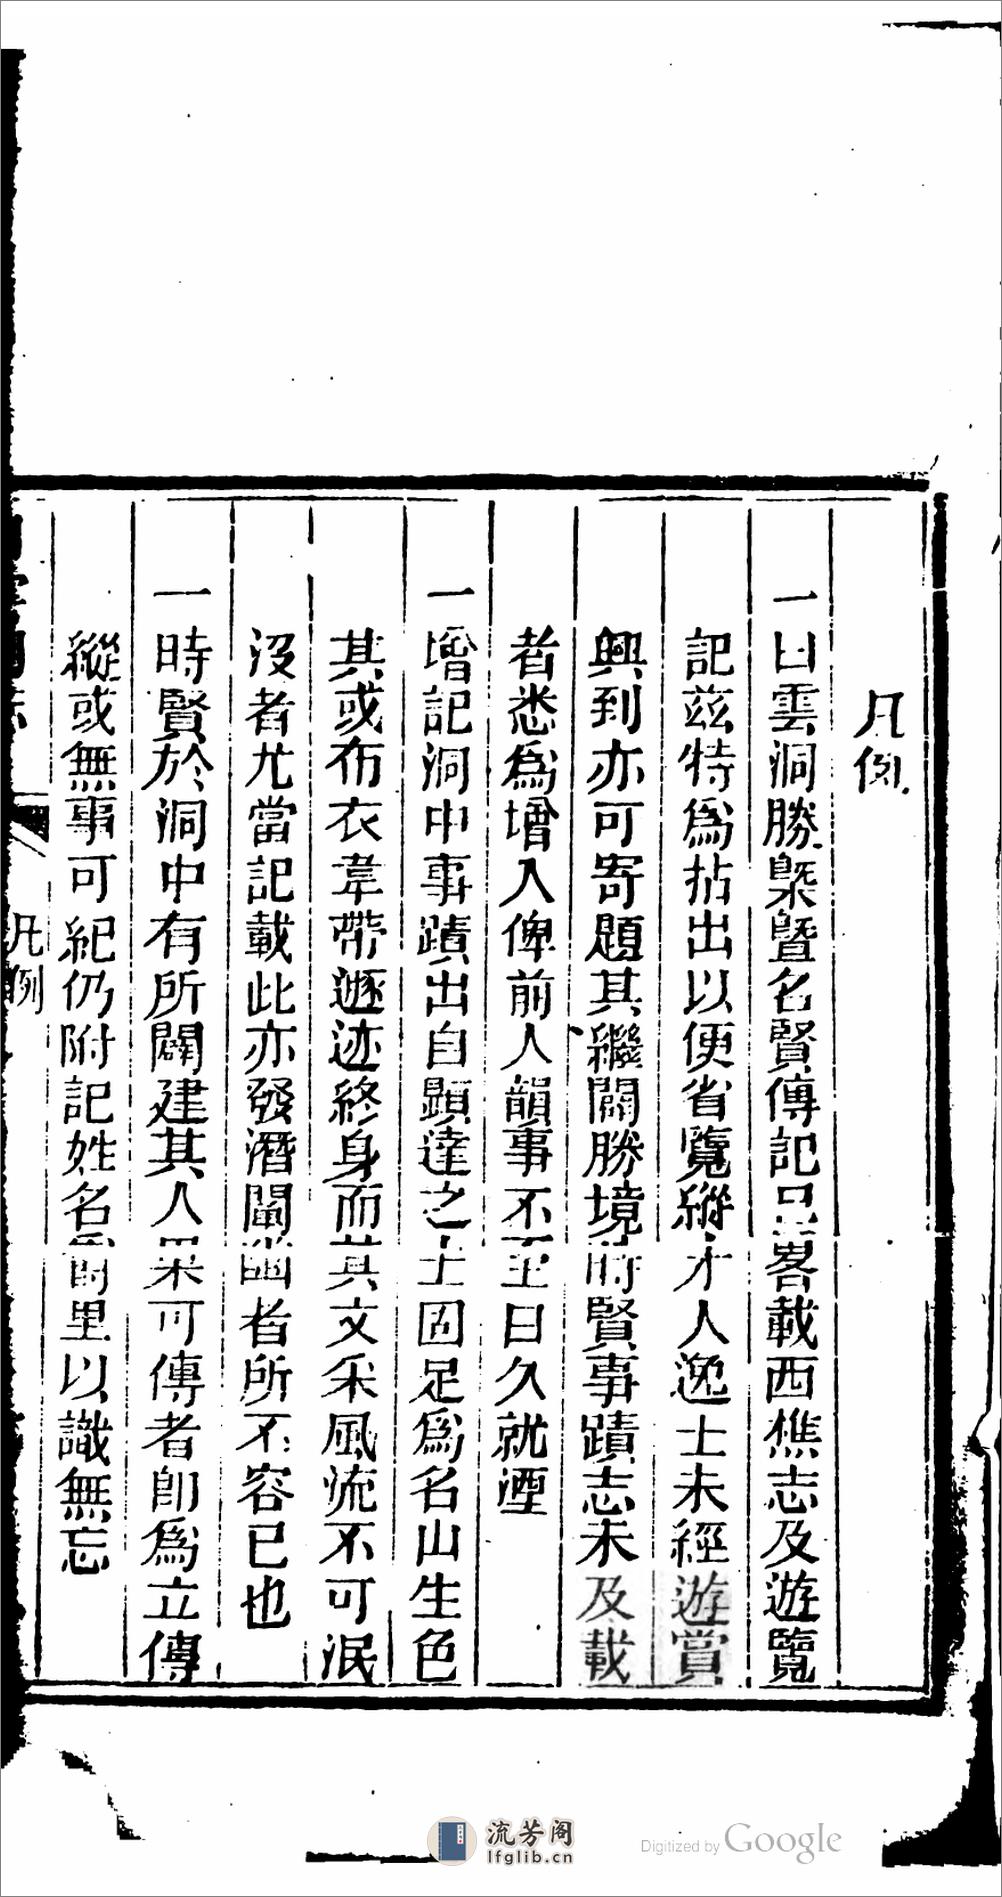 凡例
一白雲洞勝槩暨名賢傳記已畧載西樵志及遊覽
記茲特爲拈出以便省覽縱才人逸士未經遊賞
興到亦可寄題其繼闢勝境時賢事蹟志未及載
者悉爲增入俾前人韻事不至日久就湮
一增記洞中事蹟出自顯達之士固足爲名山生色
其或布衣韋帶遯迹終身而其文采風流不可泯
沒者尤當記載此亦發潛闡幽者所不容已也
一時賢於洞中有所闢建其人果可傳者卽爲立傳
縱或無事可紀仍附記姓名爵里以識無忘
凡例
流芳阁
lfglib.cn
Digitized by Google